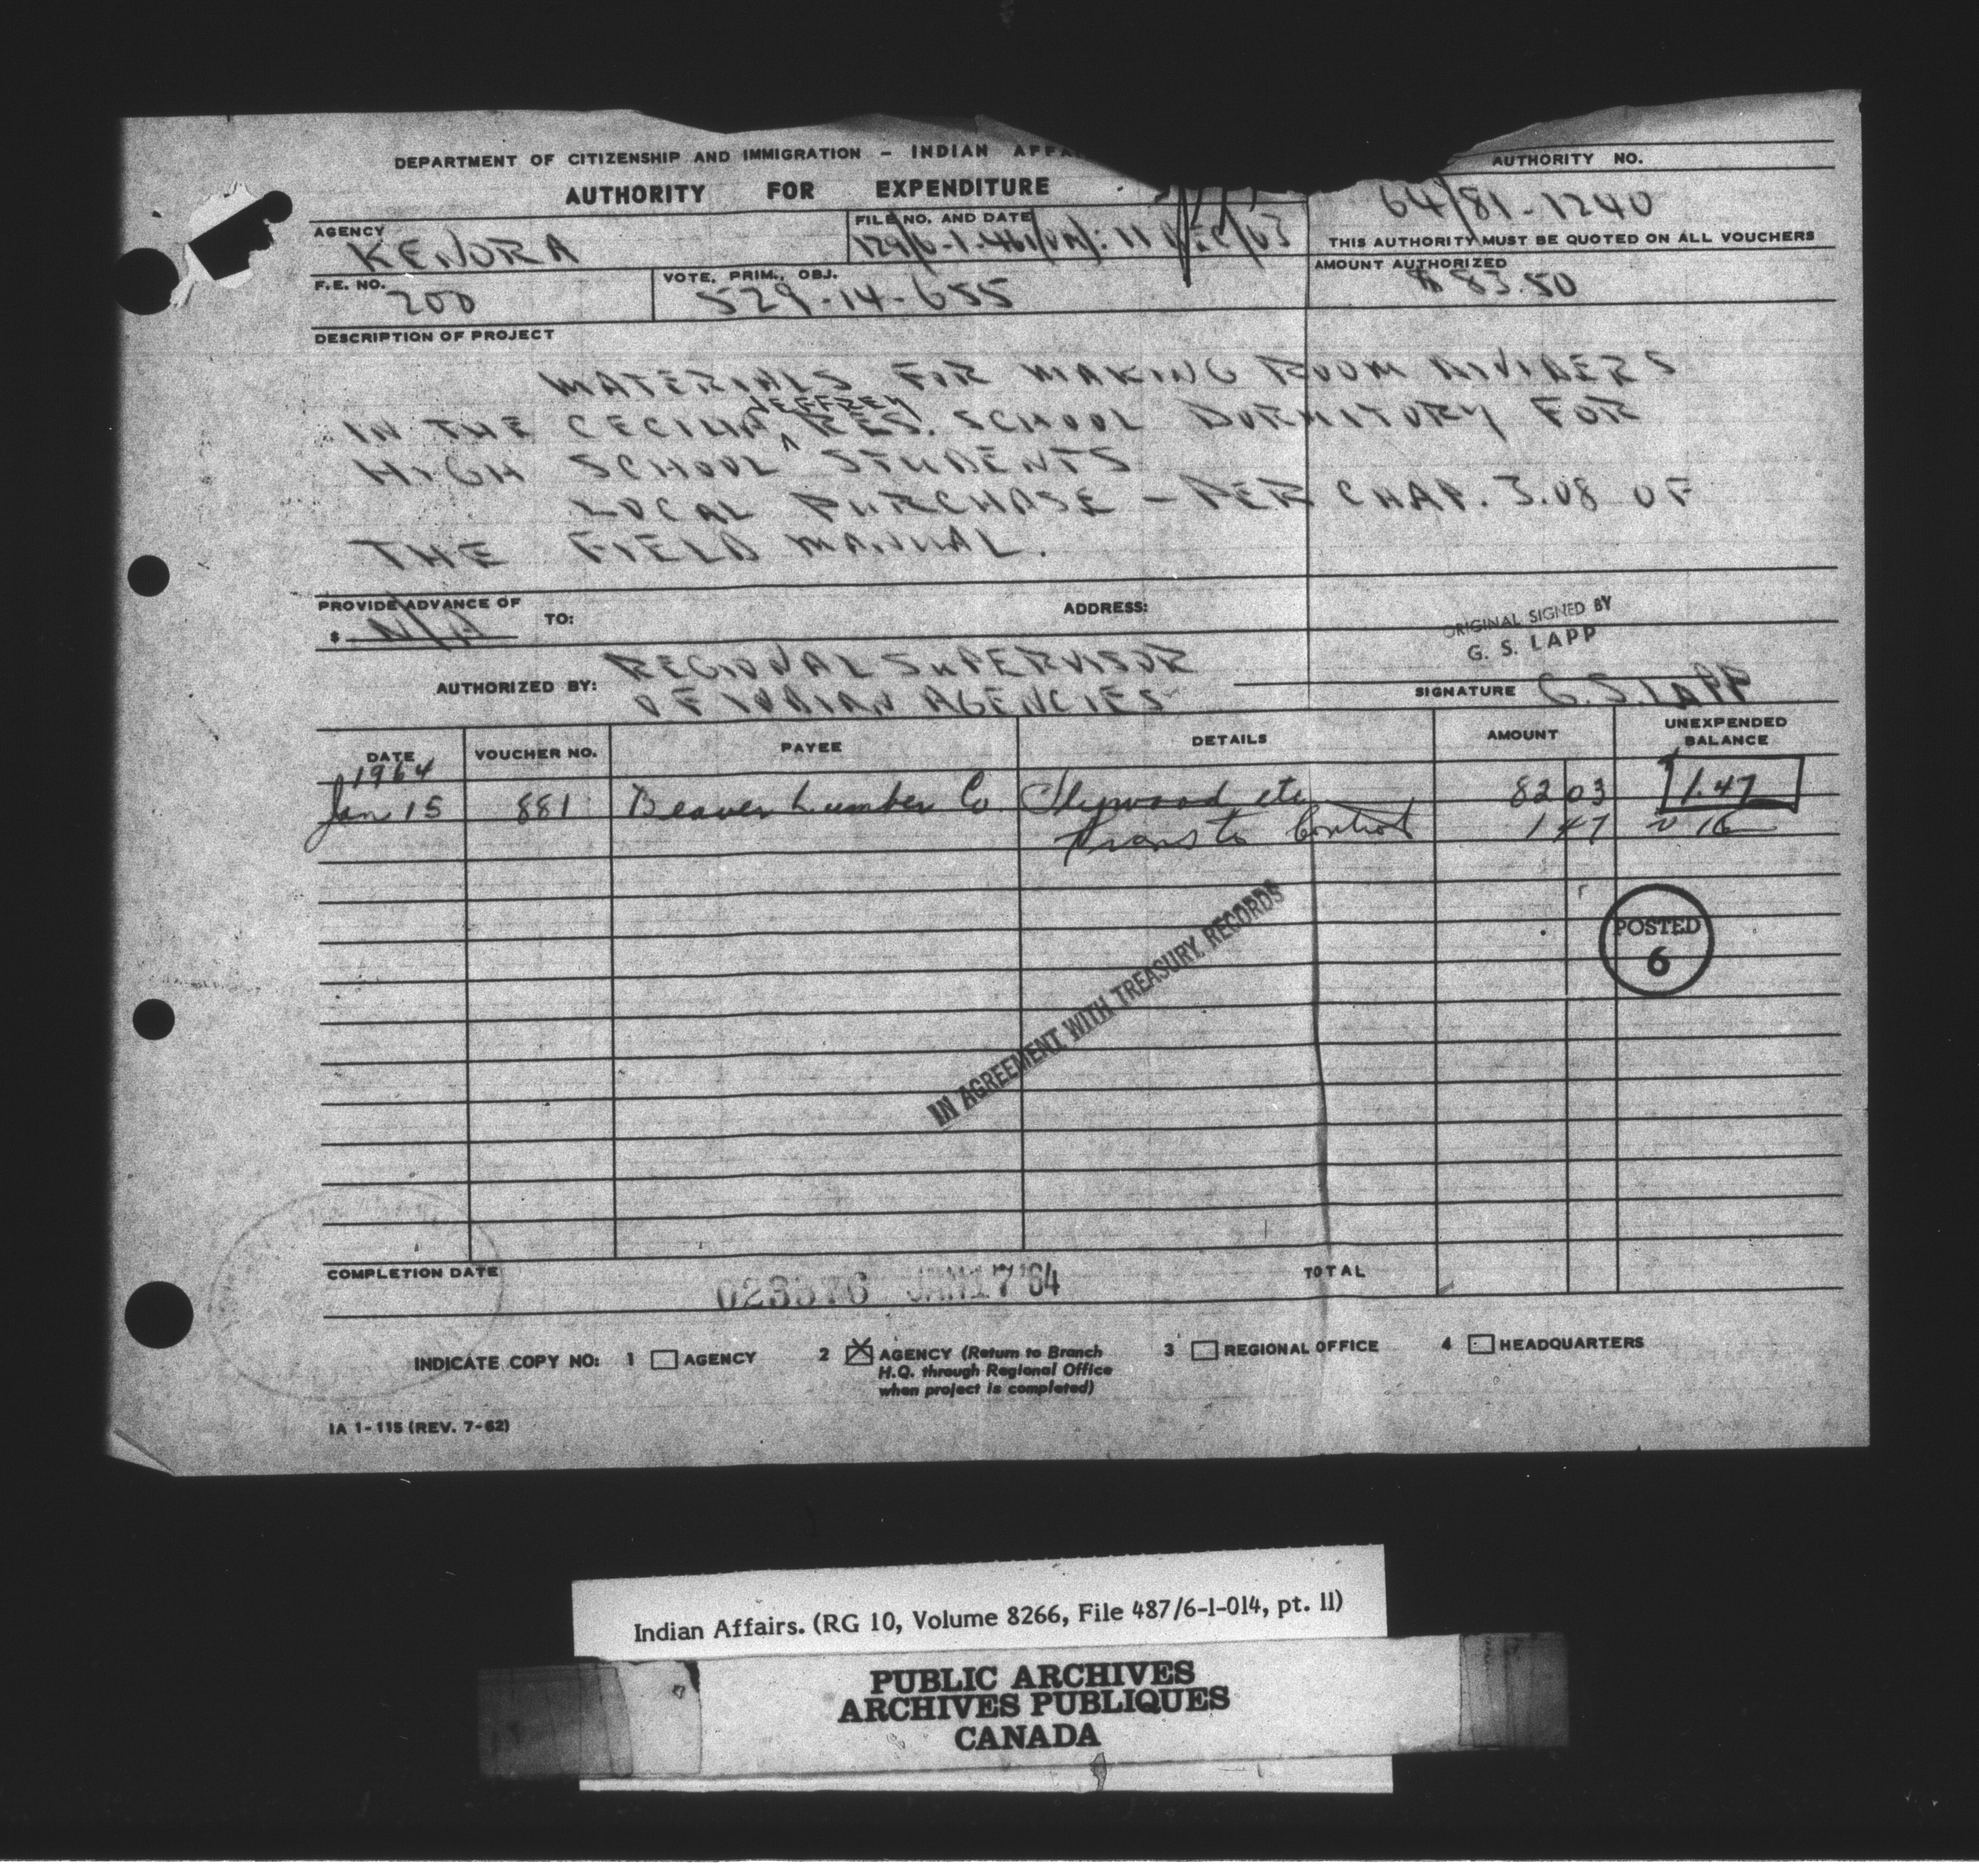 DEPARTMENT OF CITIZENSHIP AND IMMIGRATION - INDIAN AFFA
AUTHORITY FOR EXPENDITURE
AUTHORITY NO.
64/81-1240
THIS AUTHORITY MUST BE QUOTED ON ALL VOUCHERS
AGENCY
KENORA
FILE NO. AND DATE
11 DEC/63
F.E. NO.
200
VOTE, PRIM., OBJ.
529-14-655
AMOUNT AUTHORIZED
$83.50
DESCRIPTION OF PROJECT
MATERIALS FOR MAKING ROOM DIVIDERS
JEFFREY
IN THE CECILIA ^ RES. SCHOOL DORMITORY FOR
HIGH SCHOOL STUDENTS
LOCAL PURCHASE - PER CHAP. 3.08 OF
THE FIELD MANUAL.
PROVIDE ADVANCE OF
$ N/A TO: ADDRESS:
ORIGINAL SIGNED BY
G. S. LAPP
AUTHORIZED BY: REGIONAL SUPERVISOR
OF INDIAN AGENCIES
SIGNATURE G.S. LAPP
DATE VOUCHER NO. PAYEE DETAILS AMOUNT UNEXPENDED BALANCE
1964
Jan 15 881 Beaver Lumber Co Plywood etc 82 03 1.47
Trans to Control 1 47
POSTED
6
IN AGREEMENT WITH TREASURY RECORDS
COMPLETION DATE 023376 JAN 17 '64 TOTAL
INDICATE COPY NO: 1 AGENCY 2 AGENCY (Return to Branch 3 REGIONAL OFFICE 4 HEADQUARTERS
H.Q. through Regional Office
when project is completed)
IA 1-115 (REV. 7-62)
Indian Affairs. (RG 10, Volume 8266, File 487/6-1-014, pt. 11)
PUBLIC ARCHIVES
ARCHIVES PUBLIQUES
CANADA